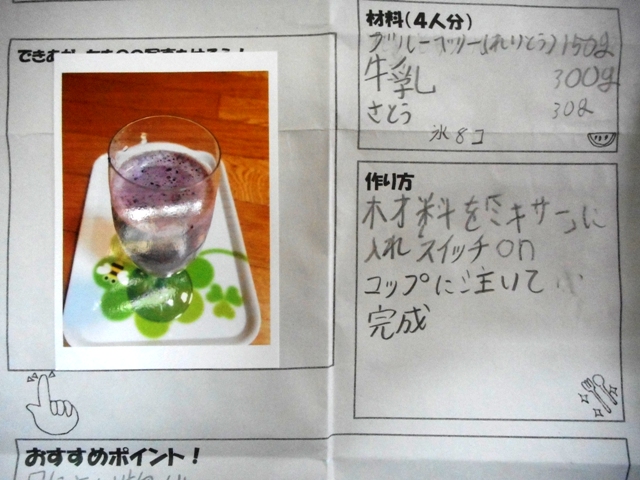 材料(4人分)
ブルーベリー(れいとう)150g
牛乳 300g
さとう 30g
氷8コ
作り方
材料をミキサーに
入れスイッチon
コップにに注いで
完成
おすすめポイント!